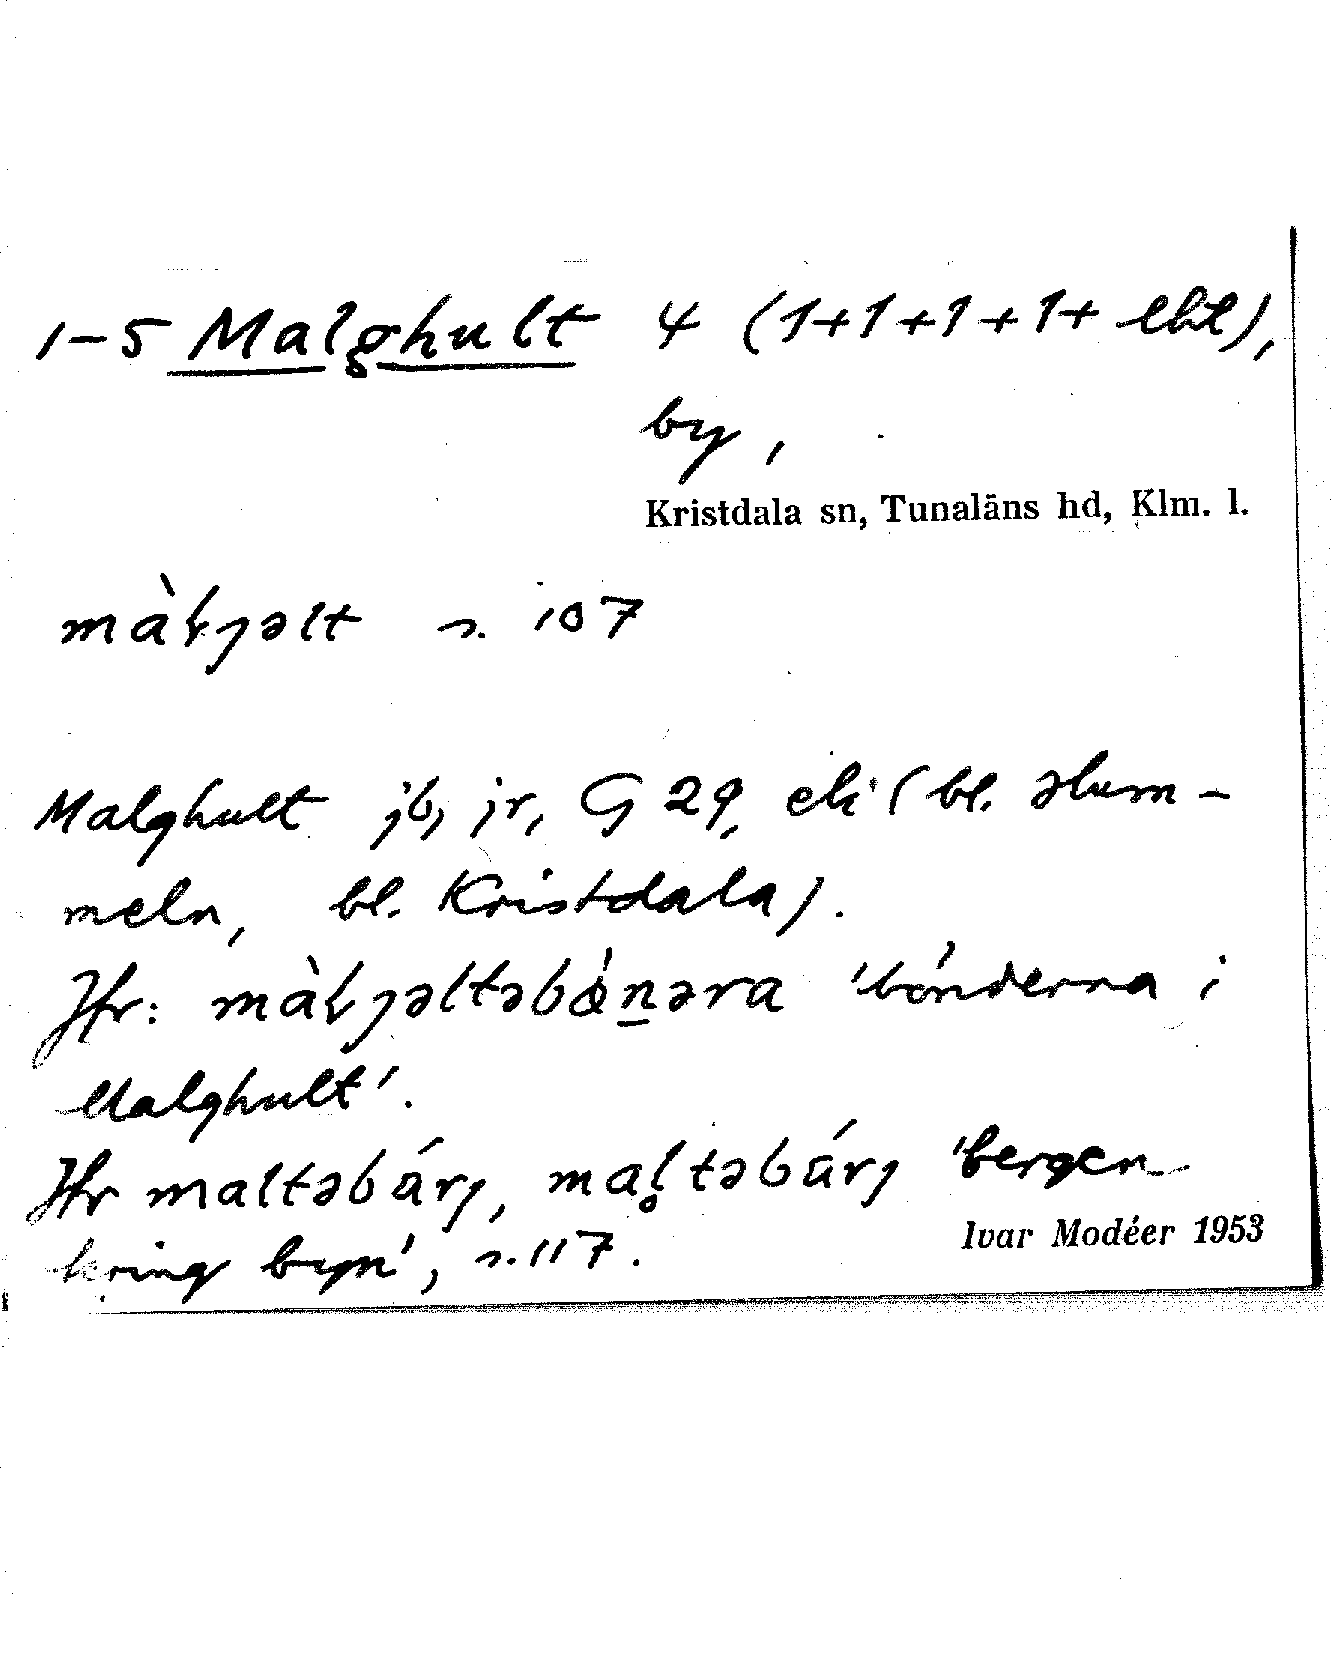 1-5 Malghult 4 (1+1+1+1+ lht),
by,
Kristdala sn, Tunaläns hd, Klm. l.
màƚɟəlt s. 107
Malghult jb, jr, G 29, ek (bl. Hum-
meln, bl. Kristdala).
Jfr: màƚɟəltəbǿn̲əra 'bönderna i
Malghult'.
Jfr maltəbárɟ, mal̥təbárɟ 'bergen
kring byn', s. 117.
Ivar Modéer 1953